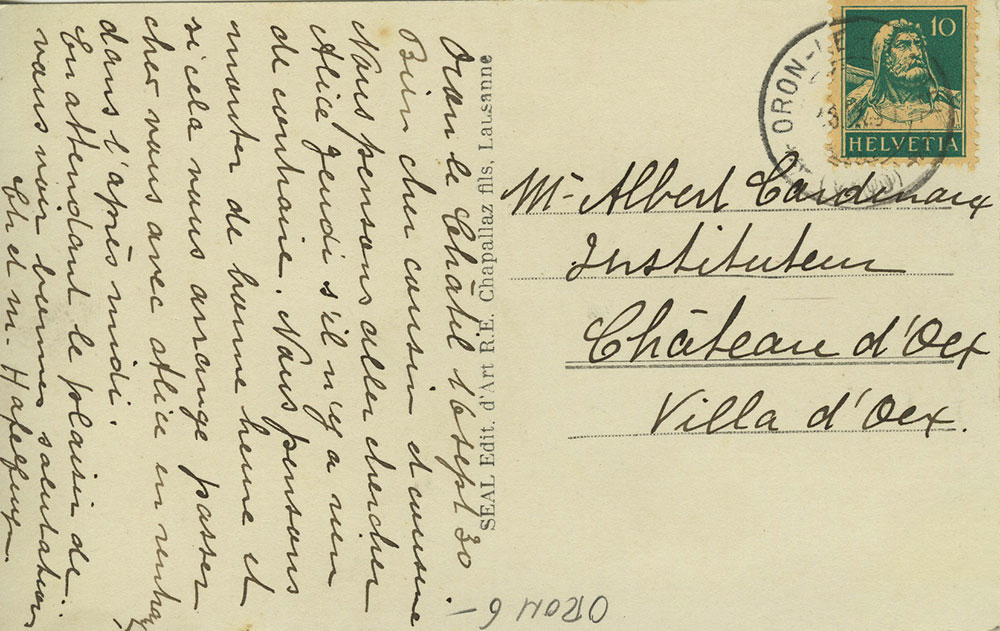 Oron le Châtil 16 sept 30
Bien cher cousin et cousine
Nous pensons aller chercher
Alice Jeudi s'il n'y a rien
de contraire. Nous pensons
monter de bonne heure et
si cela vous arrange passer
cher vous avec Alice en
dans l'après midi.
En attendant le plaisir de
vous voir bonnes salutations
Ch et m.
SEAL Edit. d'Art R.E. Chapallaz fils, Lausanne
10
HELVETIA
ORON-LE
Mr Albert Cardinaux
Instituteur
Château d'Oex
Villa d'Oex.
ORON 6-